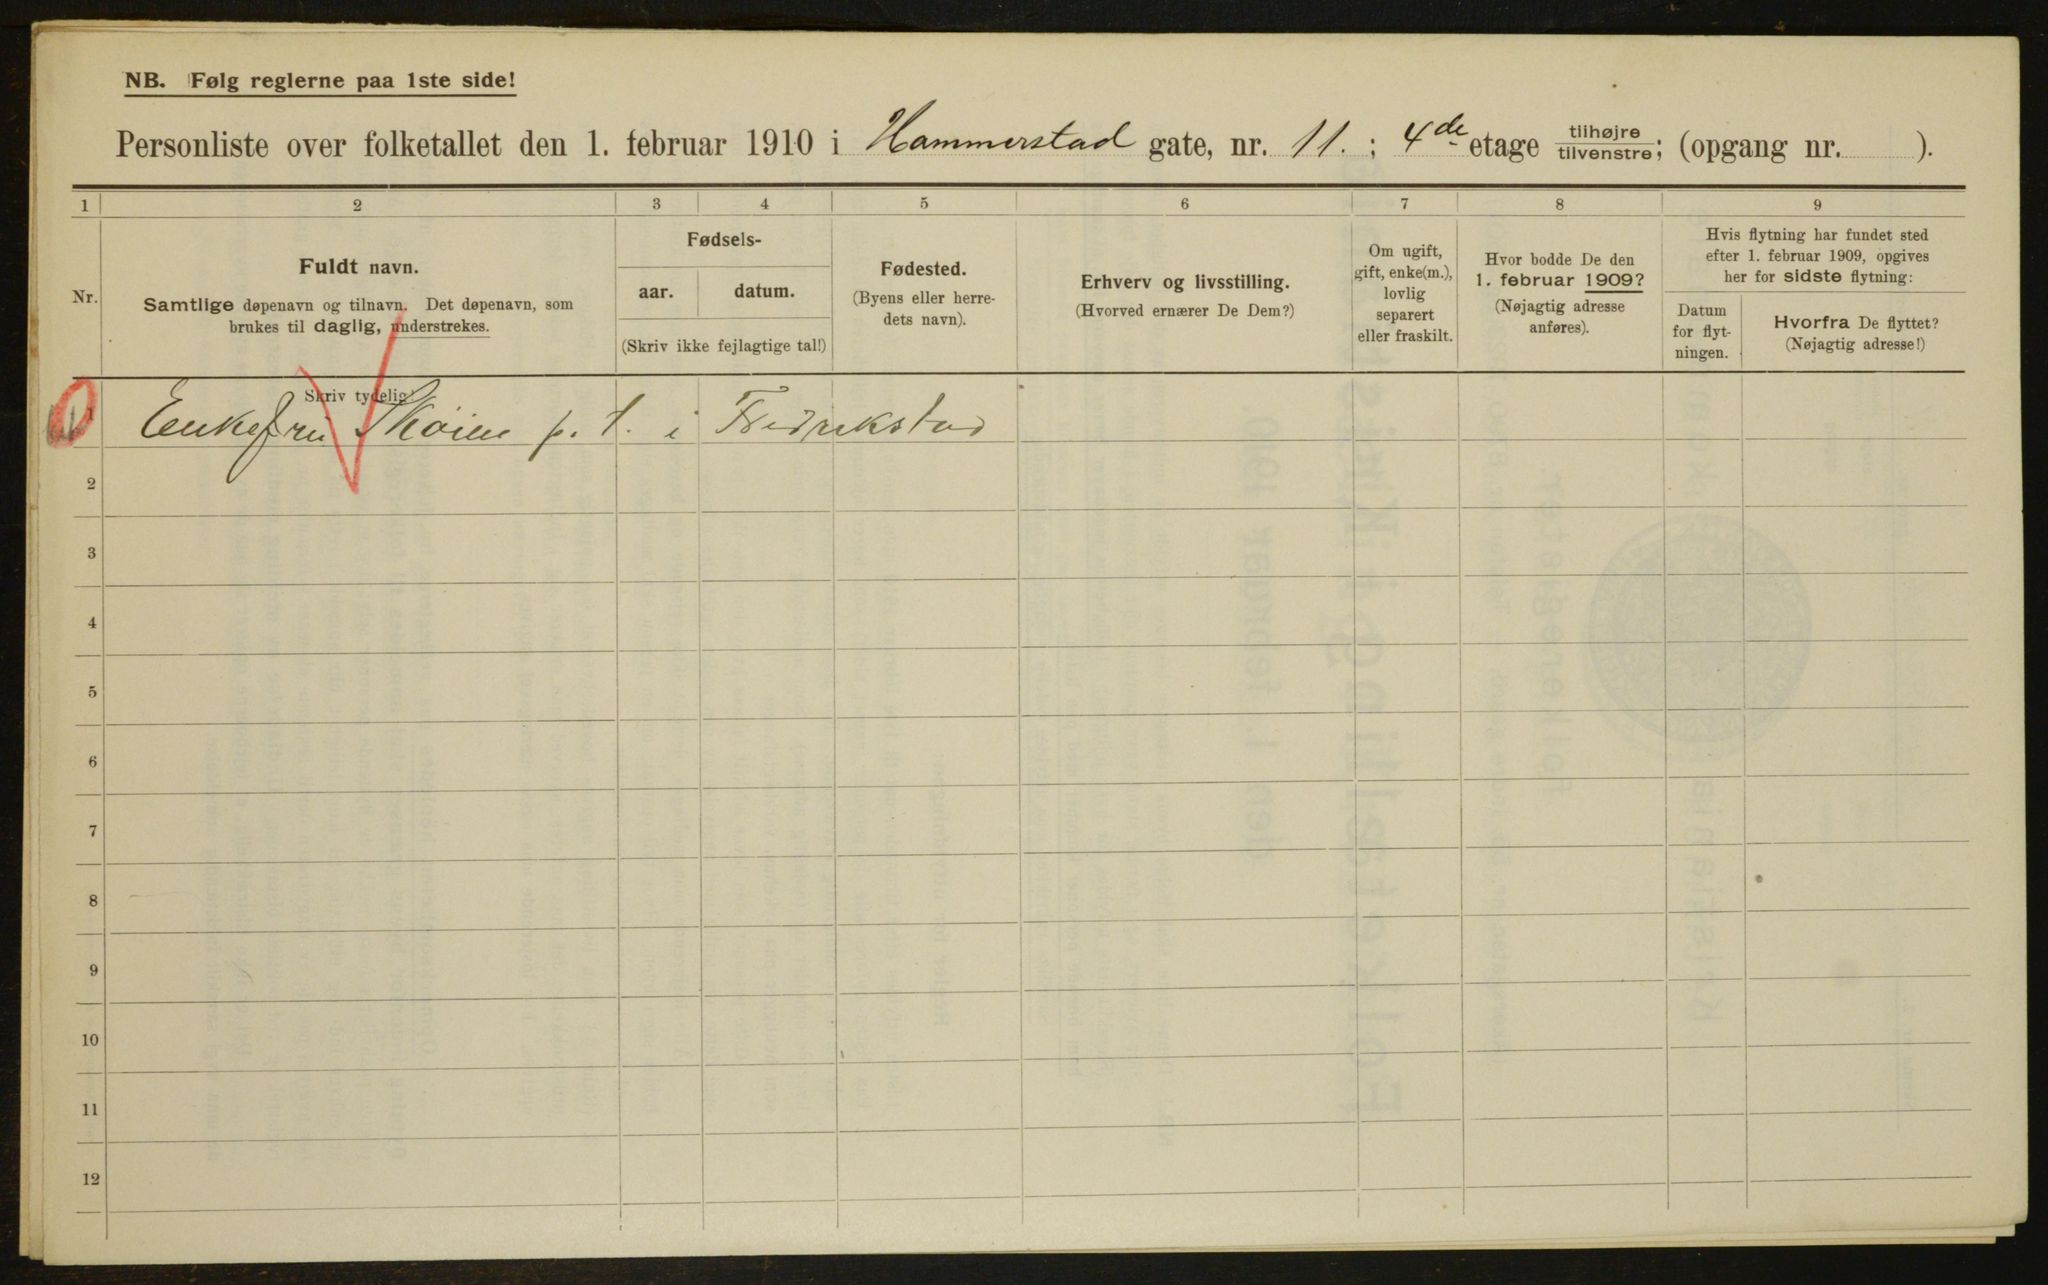 NB. Følg reglerne paa 1ste side!
Personliste over folketallet den 1. februar 1910 i Hammerstad gate, nr. 11. ; 4de etage tilhøjre/tilvenstre; (opgang nr. ).
1 2 3 4 5 6 7 8 9
Nr.
Fuldt navn.
Samtlige døpenavn og tilnavn. Det døpenavn, som
brukes til daglig, understrekes.
Fødsels-
aar. datum.
(Skriv ikke fejlagtige tal!)
Fødested.
(Byens eller herre-
dets navn).
Erhverv og livsstilling.
(Hvorved ernærer De Dem?)
Om ugift,
gift, enke(m.),
lovlig
separert
eller fraskilt.
Hvor bodde De den
1. februar 1909?
(Nøjagtig adresse
anføres).
Hvis flytning har fundet sted
efter 1. februar 1909, opgives
her for sidste flytning:
Datum
for flyt-
ningen.
Hvorfra De flyttet?
(Nøjagtig adresse!)
Skriv tydelig!
1 Enkefru Skøien p. t. i Fredrikstad
2
3
4
5
6
7
8
9
10
11
12